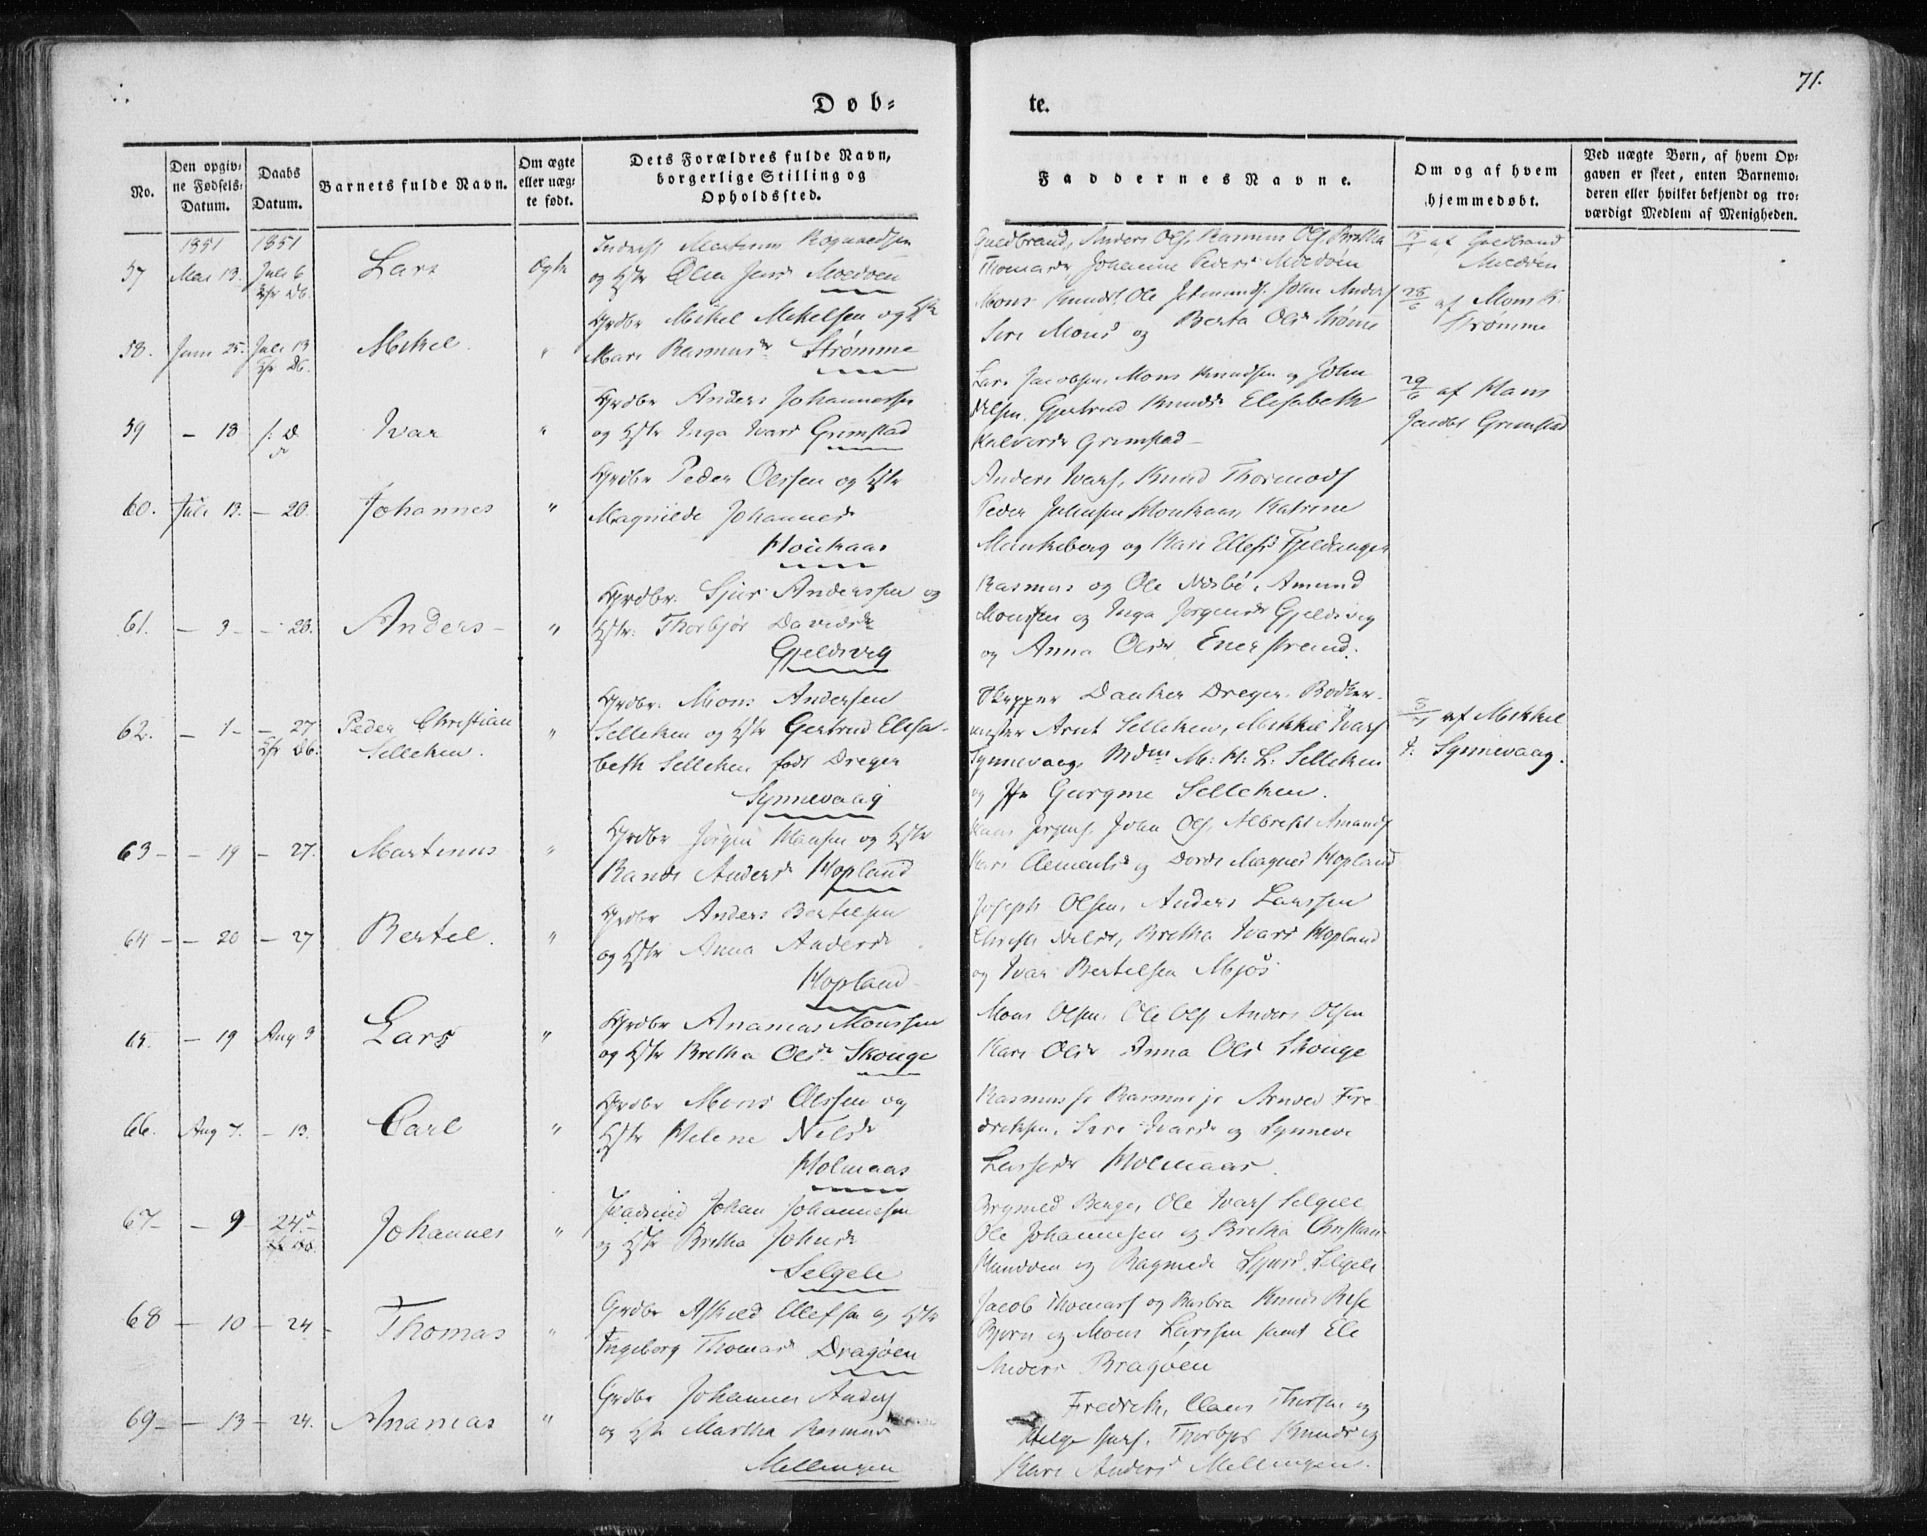 Døb-
te.
71.
No.
Den opgiv-
ne Fødsels-
Datum.
Daabs
Datum.
Barnets fulde Navn.
Om ægte
eller uæg-
te født.
Dets Forældres fulde Navn,
borgerlige Stilling og
Opholdssted.
Faddernes Navne.
Om og af hvem
hjemmedøbt.
Ved uægte Børn, af hvem Op-
gaven er skeet, enten Barnemo-
deren eller hvilket bekjendt og tro-
værdigt Medlem af Menigheden.
1851 1851
57 Mai 13. Juli 6 Lars Ægte
Martinus
og Hstr Oline Moldøen
Guldbrand, Anders Ols, Rasmus Ols, Bretha
Thomasdr Johanne Peders Moldøen
af Guldbrand
Moldøen
58. Juni 25. Juli 13 Mikel. "
Grdbr Mikel Mikelsen og Hstr
Mari Rasmusdr Strømme
Mons Knuds Ole John Anders
Siri Mons og Berta Olsdr Strøme
28/6 af Mons K.
Strømme
59 - 18 Ivar "
Grdbr Anders Johannessen
og Hstr Inga Ivars Grimstad
Lars Jacobsen, Mons Knudsen og John
Nilsen, Gjertrud Knudsdr Elisabeth
Halvorsdr Grimstad -
29/6 af Hans
Jacobs Grimstad
60. Juli 13. - 20. Johannes "
Grdbr Peder Olssen og Hstr
Magnilde Johannesdr
Houkaas
Anders Ivars, Knud Thormods
Peder Johnsen Houkaas, Katrine
Munkeberg og Kari Ellefs Fjeldanger
61. - 3 - - 20. Anders - "
Grdbr. Sjur Anderssen og
Hstr: Thorbjør Davidsdr
Gjeldsvig
Rasmus og Ole Nesbø, Amund
Monsen og Inga Jørgensdr Gjeldsvig
og Anna Olsdr Enerstrand.
62. - 1 - - 27 Peder Christian
Selleken. "
Grdbr. Mons Andersen
Selleken og Hstr Gertrud Elisa-
beth Selleken født Dreyer
Synnevaag
Skipper Danker Dreyer, Bødker-
mester Arnt Selleken, Mikkel Ivars
Synnevaag, Mdm M: H: L: Selleken
og Jfr Gurgine Selleken.
af Mikkel
I. Synnevaag.
63 - - 19 - 27. Martinus "
Grdbr Jørgen Hansen og Hstr
Randi Andersdr Hopland
Hans Jørgens, John Ols, Albrekt Amunds
Kari Clementsdr og Dorde Magnes Hopland
64 - - 20 - 27 Bertel. "
Grdbr Anders Bertelsen
og Hstr Anna Andersdr
Hopland
Joseph Olsen, Anders Larssen
Christi Nilsdr, Bretha Ivars Hopland
og Ivar Bertelsen Mjøs
65. - 19 Aug 3 Lars "
Grdbr Ananias Monssen
og Hstr Bretha Olsdr Skouge
Mons Olsen, Ole Ols, Anders Olsen
Kari Olsdr Anna Ols Skouge
66. Aug 7. - 13. Carl "
Grdbr Mons Olssen og
Hstr Helene Nilsdr
Holmaas
Rasmus Rasmus Arnved Fre-
driksen, Siri Ivarsdr og Synneve
Lassesdr Holmaas.
67 - - 9 24. - Johannes "
Johan Johannesen
og Hstr Bretha Johnsdr
Selgele
Brynild Berge, Ole Ivars Selgele
Ole Johannesen og Bretha Christian
og Ragnilde Sjurs. Selgele
68 - 10 - 24 - Thomas "
Grdbr Askild Ellefsen og Hstr
Ingeborg Thomasdr Dragøen
Jacob Thomas og Barbra Knuds
Bjørn og Mons Larssen samt Eli
Anders Bragøen
69 - - 13 - 24. Ananias "
Grdbr Johannes Anders
og Hstr Martha Rasmus
Mellingen
Fredrik, Claus Thorsen og
Helge Thorbjør Knuds og
Kari Anders Mellingen.